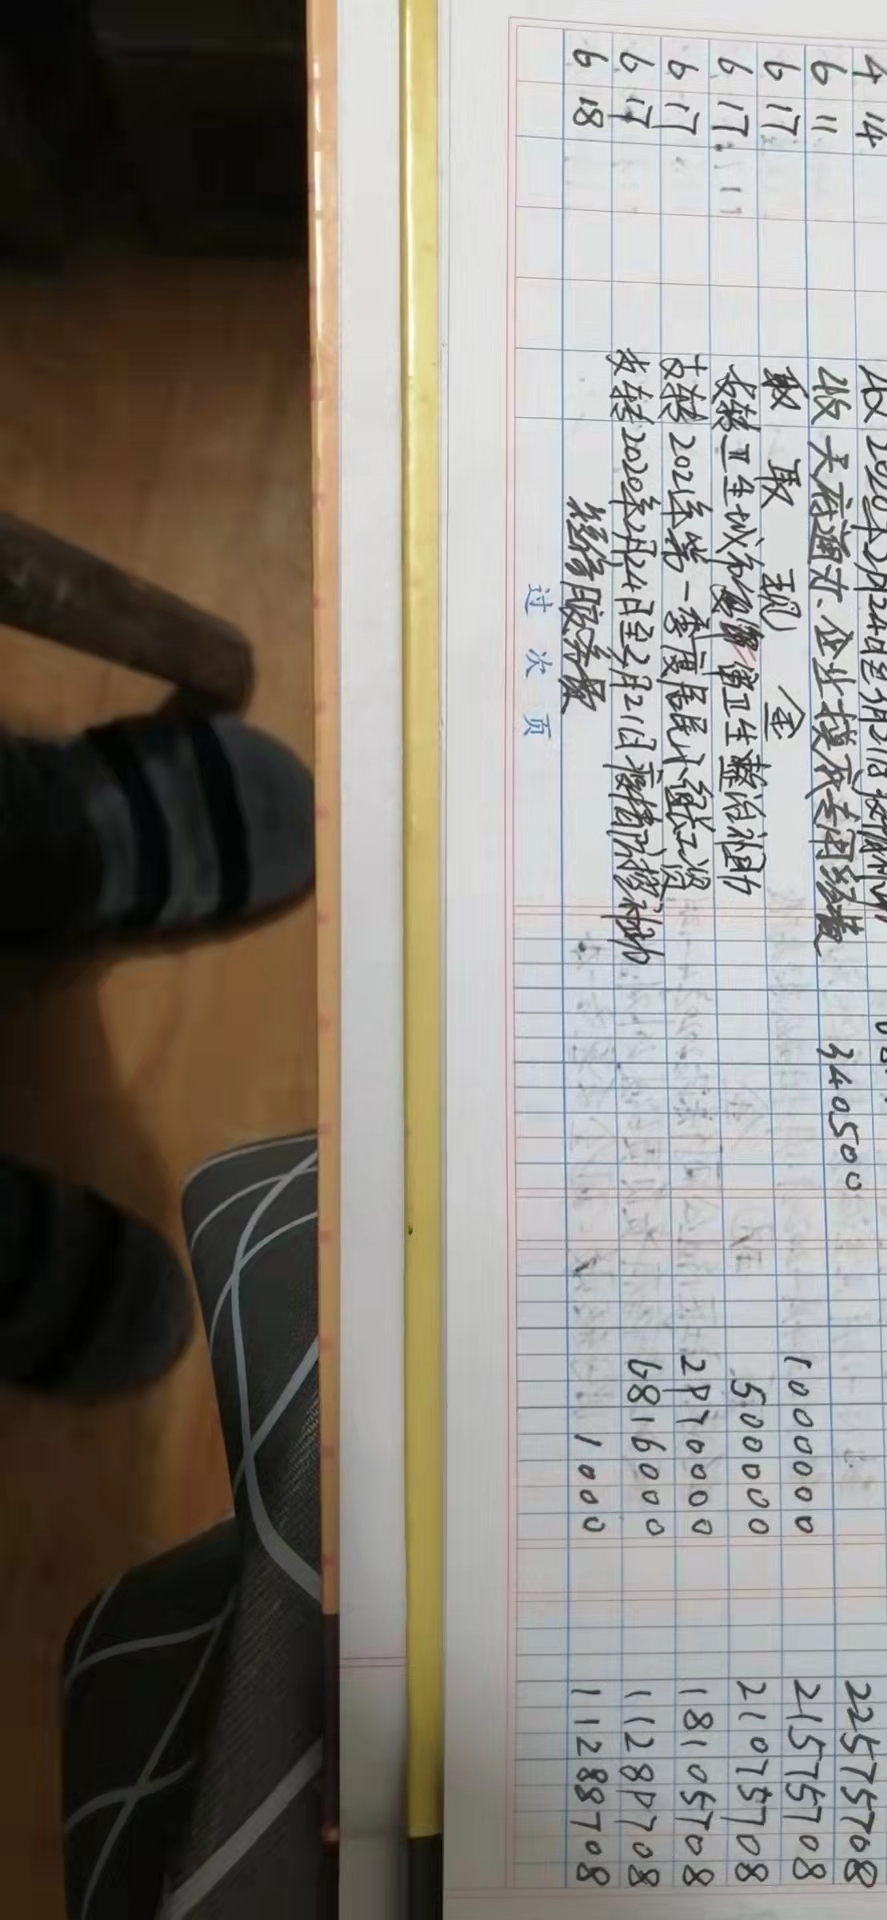 4 14 收2020年2月24日至
6 11 收天府通办、企业摸底专用经费 340500 22575708
6 17 取现金 1000000 21575708
6 17 支转卫生城市卫生整治补助 500000 21075708
6 17 支转2021年第一季度居民小组长工资 2970000 18105708
6 17 支转2020年2月24日至2月21日疫情防控补助 6816000 11289708
6 18 服务费 1000 11288708
过次页